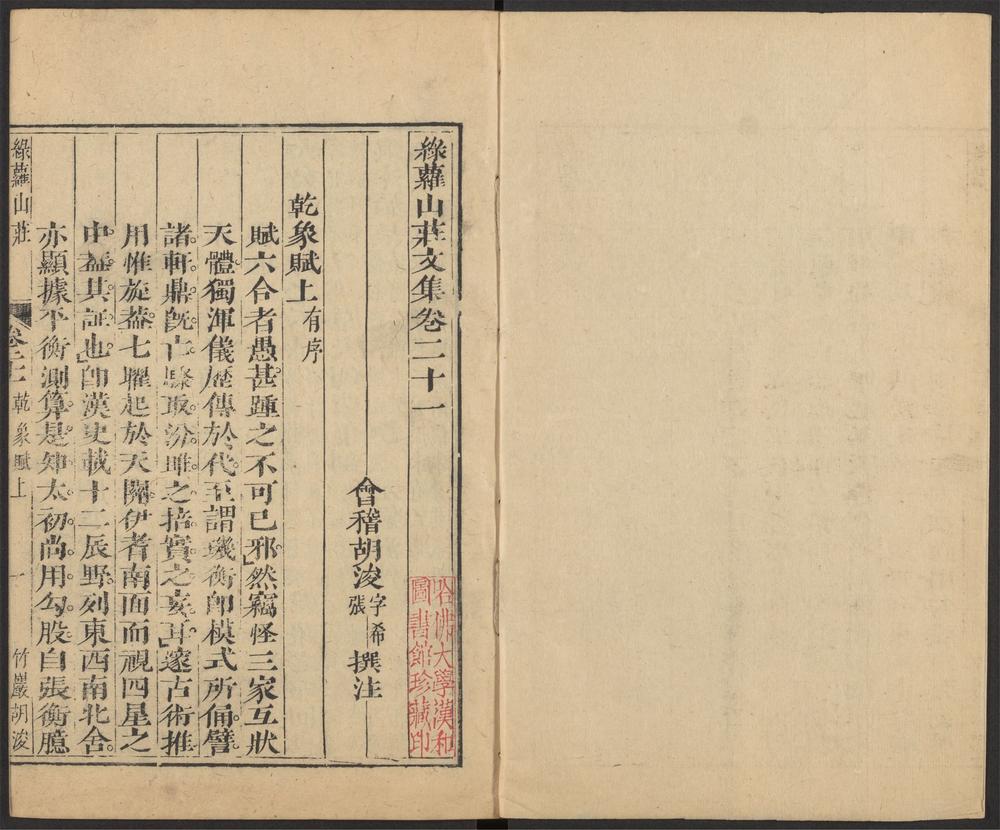 綠蘿山莊文集卷二十一
會稽胡浚字希張撰注
哈佛大學漢和
圖書館珍藏印
乾象賦上有序
賦六合者愚甚踵之不可已邪然竊怪三家互狀
天體獨渾儀歷傳於代至謂璣衡即模式所俑譬
諸軒鼎旣亡取汾脽之掊實之亥耳邃古術推
用惟旋蓋七曜起於天關伊耆南面而視四星之
中蓋其証也卽漢史載十二辰野列東西南北舍
亦顯據平衡測算是知太初尚用勾股自張衡臆
綠蘿山莊
卷二十一
乾象賦上
一
竹巖胡浚